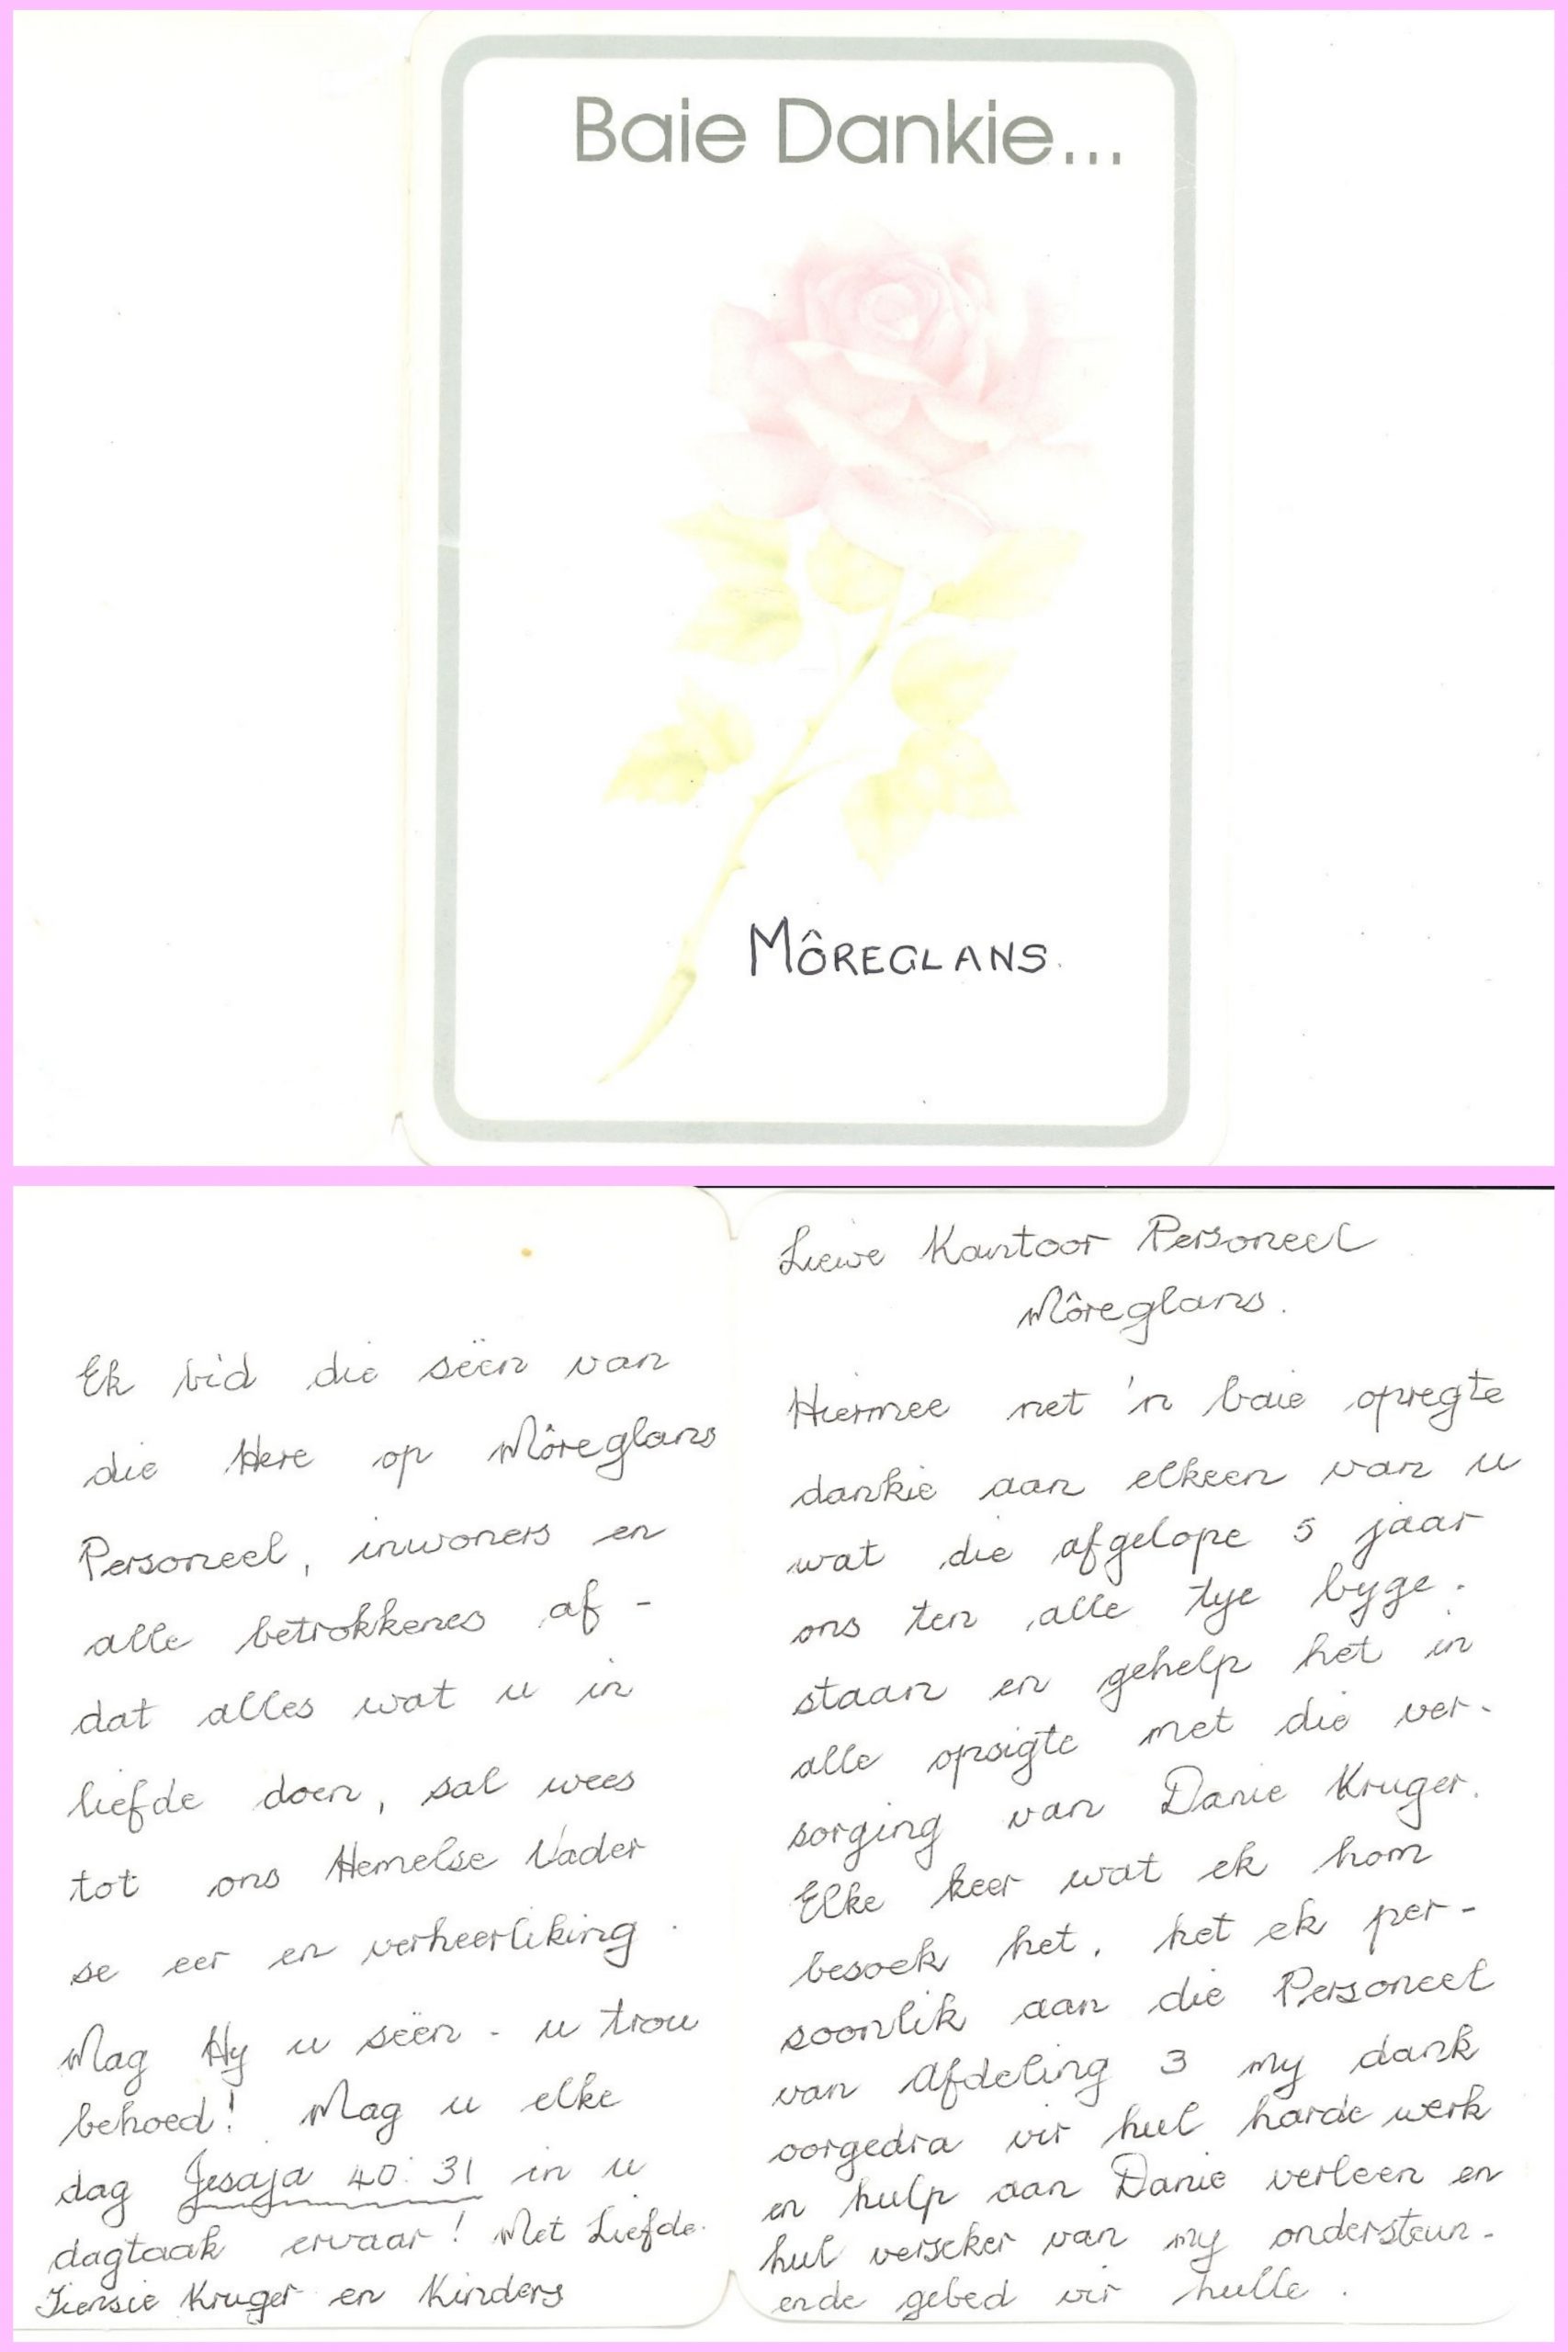 Baie Dankie...
MÔREGLANS.
Liewe Kantoor Personeel
Môreglans.
Hiermee net 'n baie opregte
dankie aan elkeen van u
wat die afgelope 5 jaar
ons ten alle tye byge-
staan en gehelp het in
alle opsigte met die ver-
sorging van Danie Kruger.
Elke keer wat ek hom
besoek het, het ek per-
soonlik aan die Personeel
van Afdeling 3 my dank
oorgedra vir hul harde werk
en hulp aan Danie verleen en
hul verseker van my ondersteun-
ende gebed vir hulle.
Ek bid die seën van
die Here op Môreglans
Personeel, inwoners en
alle betrokkenes af -
dat alles wat u in
liefde doen, sal wees
tot ons Hemelse Vader
se eer en verheerliking.
Mag Hy u seën - u trou
behoed! Mag u elke
dag Jesaja 40:31 in u
dagtaak ervaar! Met Liefde.
Tiensie Kruger en Kinders